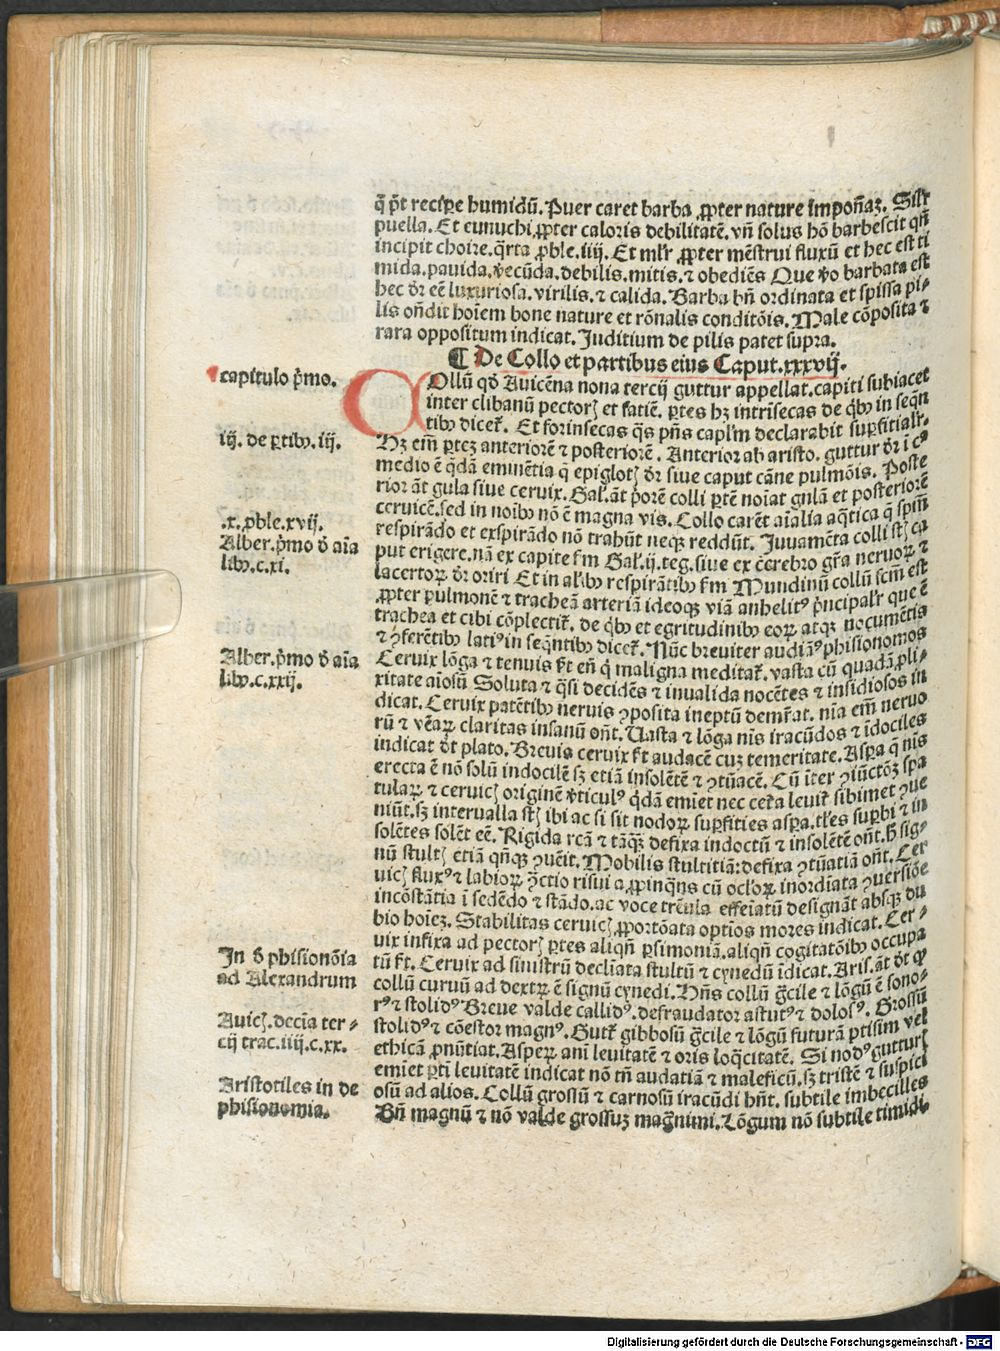 q̄ p̄t recipe humidū. Puer caret barba ꝓpter nature impoñaꝫ. Silr̄
puella. Et eunuchi ꝓpter caloris debilitatē. vñ solus hō barbescit qñ
incipit choire. q̄rta ꝓble. iiij. Et ml̄r ꝓpter mēstrui fluxū et hec est ti
mida. pauida. v̄ecūda. debilis. mitis. ⁊ obediēs Que v̄o barbata est
hec dr̄ eē luxuriosa. virilis. ⁊ calida. Barba bñ ordinata et spissa pi⸗
lis oñdit hoiem bone nature et rōnalis conditōis. Male cōposita ⁊
rara oppositum indicat. Juditium de pilis patet supra.
¶ De Collo et partibus eius Caput. xxxvij.
capitulo p̄mo.
COllū qd̄ Auicēna nona tercij guttur appellat. capiti subiacet
inter clibanū pectorꝭ et fatiē. ꝑtes hꝫ intrisecas de q̄bꝰ in seq̄n
tibꝰ dicet̄. Et forinsecas q̄s p̄ns capl̄m declarabit suꝑfitialr̄.
iij. de ꝑtibꝰ. iij.
Hꝫ em̄ ꝑteꝫ anteriorē ⁊ posteriorē. Anterior ab aristo. guttur dr̄ ī cꝰ
medio ē q̄dā eminētia q̄ epiglotꝭ dr̄ siue caput cāne pulmōis. Poste
rior āt gula siue ceruix. Gal. āt p̄orē colli ꝑtē noīat gulā et posteriorē
ceruicē. sed in noībꝰ nō ē magna vis. Collo carēt aīalia aq̄tica q̄ spm̄
.x. ꝓble. xvij.
respirādo et exspirādo nō trahūt neqꝫ reddūt. Juuamēta colli st̄ꝭ ca
Alber. p̄mo d̄ aīa
put erigere. nā ex capite fm̄ Gal. ij. teg. siue ex cērebro gr̄a neruoꝝ ⁊
libꝰ. c. xi.
lacertoꝝ dr̄ oriri Et in al̄ibꝰ respirātibꝰ fm̄ Mundinū collū fcm̄ est
ꝓpter pulmonē ⁊ tracheā arteriā ideoqꝫ viā anhelitꝰ p̄ncipalr̄ que ē
trachea et cibi cōplectit̄. de q̄bꝰ et egritudinibꝰ eoꝝ atqꝫ nocumētis
⁊ ꝯferētibꝰ latiꝰ in seq̄ntibꝰ dicet̄. Nūc breuiter audiāꝰ phisionomos
Alber. p̄mo d̄ aīa
Ceruix lōga ⁊ tenuis fīt eñ q̄ maligna meditat̄. vasta cū quadā ꝓli⸗
libꝰ. c. xxij.
xitate aīosū Soluta ⁊ q̄si decidēs ⁊ inualida nocētes ⁊ insidiosos in
dicat. Ceruix patētibꝰ neruis ꝯposita ineptū demr̄at. nīa em̄ neruo
rū ⁊ vēaꝝ claritas insanū oñt. Uasta ⁊ lōga nīs iracūdos ⁊ īdociles
indicat v̄t plato. Breuis ceruix fīt audacē cuꝫ temeritate. Aspa q̄ nīs
erecta ē nō solū indocilē sꝫ etiā insolētē ⁊ ꝯtūacē. Cū īter ꝯiūctōꝫ spa
tulaꝝ ⁊ ceruicꝭ originē v̄ticulꝰ q̄dā emiet nec cet̄a leuit̄ sibimet ꝯue
niūt. sꝫ interualla st̄ꝭ ibi ac si sit nodoꝝ suꝑfities aspa. tl̄es suꝑbi ⁊ in
solētes solēt eē. Rigida rcā ⁊ tāq̄ꝫ defixa indoctū ⁊ insolētē oñt. hꝭ sig⸗
nū stultꝭ etiā qñqꝫ ꝯuēit. Mobilis stultitiā: defixa ꝯtūatiā oñt. Cer
uicꝭ fluxꝰ ⁊ labioꝝ ꝯctio risui a ꝓpinq̄ns cū ocl̄oꝝ inordīata ꝯuersiōe
incōstātia ī sedēdo ⁊ stādo. ac voce trēula effeiatū designāt absqꝫ du
bio hoieꝫ. Stabilitas ceruicꝭ ꝓportōata optīos mores indicat. Cer⸗
uix infixa ad pectorꝭ ꝑtes aliqñ ꝑsimoniā. aliqñ cogitatōibꝰ occupa
In d̄ phisionōia
tū fīt. Ceruix ad sinistrū declīata stultū ⁊ cynedū īdicat. Aris. āt v̄t qꝫ
ad Alexandrum
collū curuū ad dextꝝ ē signū cynedi. Hñs collū ḡcile ⁊ lōgū ē sono⸗
rꝰ ⁊ stolidꝰ Breue valde callidꝰ. defraudator astutꝰ ⁊ dolosꝰ. Grossū
Auicꝭ. decīa ter⸗
stolidꝰ ⁊ cōestor magnꝰ. Gutt̄ gibbosū ḡcile ⁊ lōgū futurā ptisim vel
cij trac. iiij. c. xx.
ethicā ꝓnūtiat. Aspeꝝ anī leuitatē ⁊ oris loq̄citatē. Si nodꝰ gutturꝭ
emiet ꝑti leuitatē indicat nō tñ audatiā ⁊ maleficū. sꝫ tristē ⁊ suspici
Aristotiles in de
osū ad alios. Collū grossū ⁊ carnosū iracūdi hñt. subtile imbecilles
phisionomia.
Bñ magnū ⁊ nō valde grossuꝫ mag̃nimi. Lōgum nō subtile timidi.
Digitalisierung gefördert durch die Deutsche Forschungsgemeinschaft - DFG